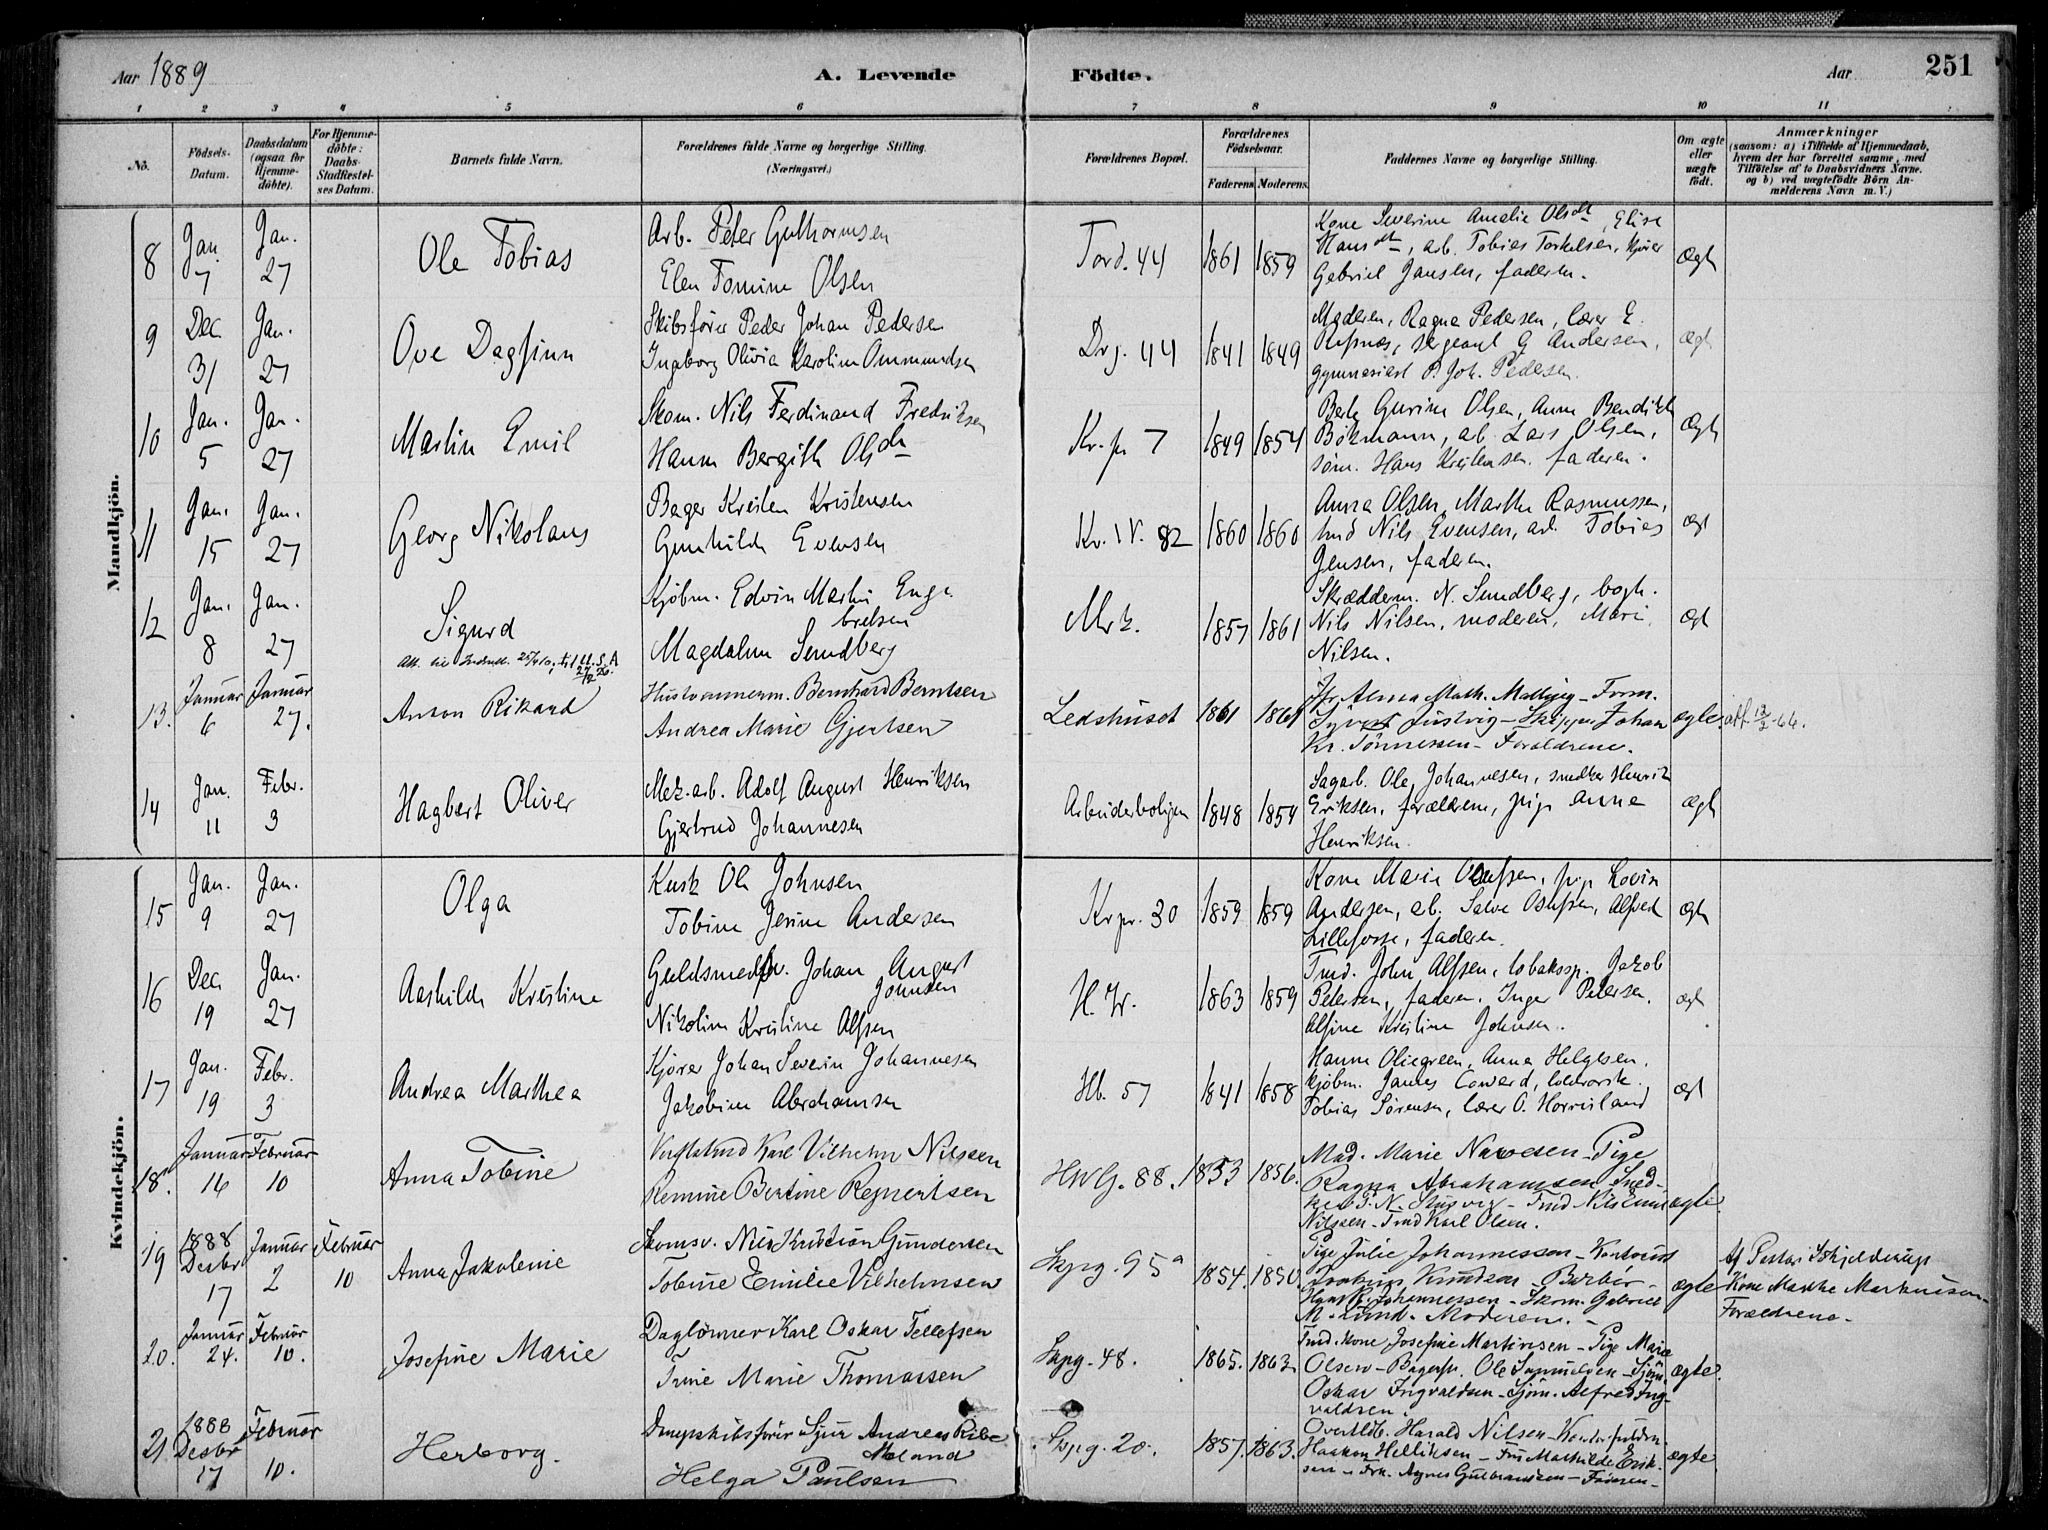 Aar 1889
A. Levende
Födte.
Aar
251
1 2 3 4 5 6 7 8 9 10 11
Nö.
Födsels-
Datum.
Daabsdatum
(ogsaa for
Hjemme-
döbte).
For Hjemme-
döbte:
Daabs-
Stadfæstel-
ses Datum.
Barnets fulde Navn.
Forældrenes fulde Navne og borgerlige Stilling.
(Næringsvei.)
Forældrenes Bopæl.
Forældrenes
Födselsaar.
Faderens. Moderens.
Faddernes Navne og borgerlige Stilling.
Om ægte
eller
uægte
födt.
Anmærkninger
(saasom: a) i Tilfælde af Hjemmedaab,
hvem der har forrettet samme, med
Tilföielse af to Daabsvidners Navne.
og b) ved uægtefödte Börn An-
melderens Navn m. V.)
Mandkjön.
8 Jan. 7 Jan. 27
Ole Tobias
Arb. Peter Guthormsen
Elen Tomine Olsen
Tord. 44 1861 1859
Kone Severine Amalie Olsdt, Elise
Hansdtr, arb. Tobias Torkelsen, kjører
Gabriel Jansen, faderen.
Ægt
9 Dec 31 Jan. 27
Ove Dagfinn
Skibsfører Peder Johan Pedersen
Ingeborg Olivia Karoline Ommundsen
Drg. 44 1841 1849
Moderen, Ragna Pedersen, lærer E.
Refsnæs, sergeant G Andersen,
gymnasiast P. Joh. Pedersen.
Ægt
10 Jan. 5 Jan. 27
Martin Emil
Skom. Nils Ferdinand Fredriksen
Hanna Bergith Olsdtr
Kr. pr 7 1849 1854
Gurine Olsen, Anne
Bökmann, ab Lars Olsen,
søm. Hans Kristensen. faderen.
Ægt
11 Jan. 15 Jan. 27
Georg Nikolaus
Bager Kristen Kristensen
Gunhilda Evensen
Kr. IV. 82 1860 1860
Anna Olsen, Marthe Rasmussen,
tmd Nils Evensen, arb. Tobias
Jensen, faderen.
Ægt
12 Jan. 8 Jan. 27
Sigurd
Kjöbm. Edvin Martin Enge-
bretsen
Magdalene Sundberg
Mrk. 1857 1861
Skrædderm. N. Sundberg, bogh.
Nils Nilsen, moderen, Marie
Nilsen.
Ægt
13. Januar 6 Januar 27.
Anton Rikard
Hustømmerm. Bernhard Berntsen
Andrea Marie Gjertsen
Ledshuset 1861 1861
Jfr. Alma Math. Form.
Justvig - Skipper Johan
Kr. Tönnessen - Forældrene.
ægte. att. 12/2-66.
14 Jan. 11 Febr. 3
Hagbart Oliver
Mek. arb. Adolf August Henriksen
Gjertrud Johannesen
Arbeiderboligen 1848 1854
Sagarb. Ole Johannesen, snedker Henrik
Eriksen, forældrene, pige Anne
Henriksen.
Ægt
Kvindekjön.
15 Jan. 9 Jan. 27
Olga
Kusk Ole Johnsen
Tobine Jesine Andersen
Kr pr. 30 1859 1859
Kone Marie Olufsen, pige Lovise
Andersen, ab. Salve Osufsen, Alfred
Lillefosse, faderen.
Ægt
16 Dec 19 Jan. 27
Aashilda Kristine
Guldsmedsv. Johan August
Johnsen
Nikoline Kristine Alfsen
H. W. 1863 1859
Tmd. John Alfsen, tobakssp. Jakob
Petersen, faderen. Inger Petersen.
Alfine Kristine Johnsen.
Ægt
17 Jan. 19 Febr. 3
Andrea Marthea
Kjører Johan Severin Johannesen
Jakobine Abrahamsen
Hb. 57 1841 1858
Hanne Oliegreen, Anna Helgesen.
kjöbm. James Coward, toldrorsk.
Tobias Sørensen, lærer O. Horrisland
Ægt
18. Januar 16 Februar 10
Anna Tobine
Verftstmd Karl Vilhelm Nilssen
Remine Bertine Reinertsen
HWG. 88. 1853 1856.
Mad. Marie Navesen - Pige
Ragna Abrahamsen - Sned-
ker - Tmd Nils
Nilssen - Tmd Karl Olsen.
ægte.
19 1888 Desbr 17 Januar 2 Februar 10
Anna Jakobine
Skomsv. Nils Kristian Gundersen
Tobine Emilie Vilhelmsen
Skpg. 95a 1854. 1850.
Pige Julie Johannessen - Kontorist
Joakim Knudsen - Barber
Hans R. Johannessen - Skom. Gabriel
M. Lund - Moderen. -
ægte
Af Pastor Schjelderup
Kone Marthe Markusen -
Forældrene -
20. Januar 24. Februar 10.
Josefine Marie
Daglönner Karl Oskar Tellefsen
Trine Marie Thomassen
Skpg. 48. 1865. 1863.
Tmd. kone Josefine Martinsen - Pige Marie
Olsen - Bagersv. Ole Samuelsen - Sjöm.
Oskar Ingvaldsen - Sjöm. Alfred Ing-
valdsen.
ægte.
21 1888 Desbr 17 Februar 10.
Herborg.
Dampskibsfører Sjur Andreas Ribe
Meland
Helga Paulsen
Skpg. 20. 1857. 1863.
Overtldb. Harald Nilsen -
Haakon Helliksen - Fru Mathilde Erik-
sen - Frk. Agnes Gulbrandsen - Faderen -
ægte